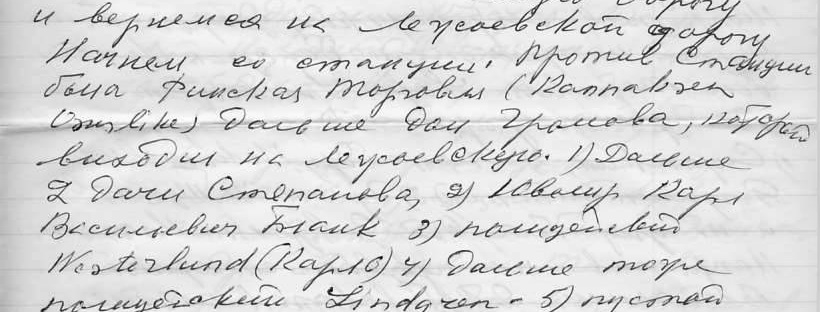 и вернемся на Лужаевской дорогу
Начнем со станции. Против станции
была Финская торговля (Kannaksen
Osuusliike) Дальше дом Громова, который
выходил на Лужаевскую. 1) Дальше
2 дачи Степанова, 2) Ювелир Карл
Васильевич Бланк 3) полицейский
Westerlund (Карло) 4) Дальше тоже
полицейский Lindgren - 5) пустой